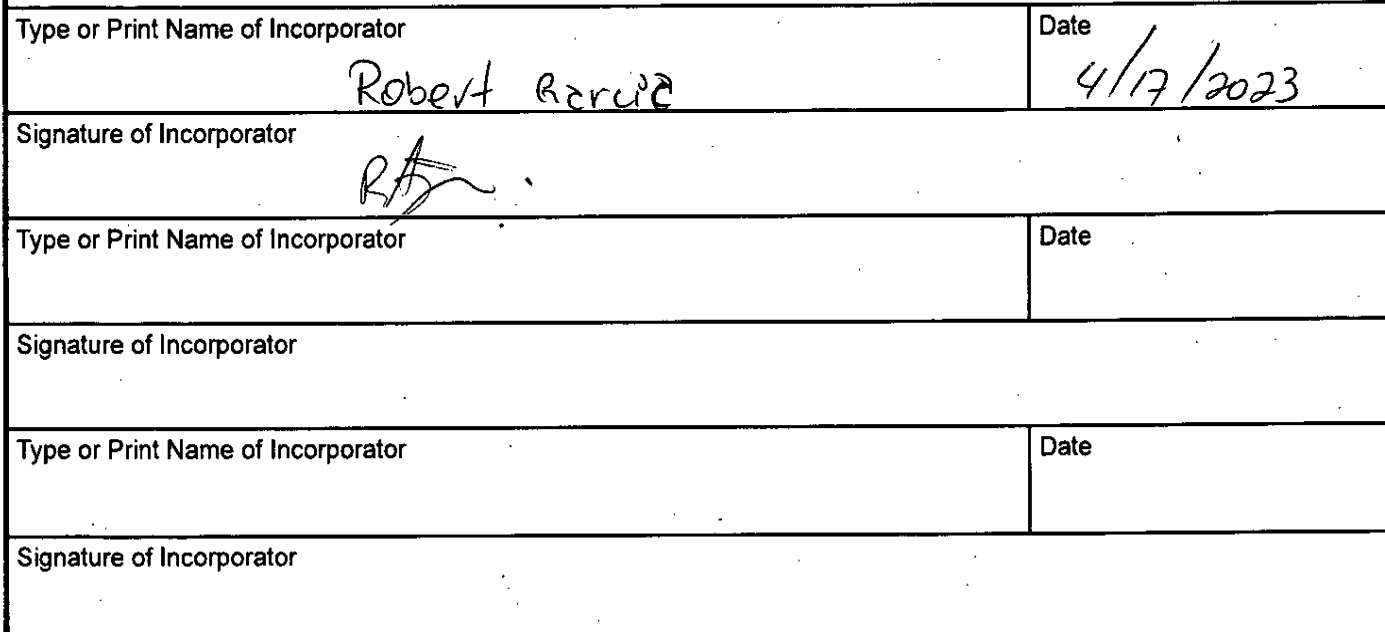 Type or Print Name of Incorporator
Date
Robert Garcia
4/17/2023
Signature of Incorporator
Type or Print Name of Incorporator
Date
Signature of Incorporator
Type or Print Name of Incorporator
Date
Signature of Incorporator